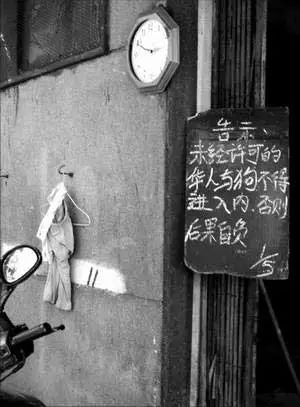 告示
未经许可的
华人与狗不得
进入内、否则
后果自负
1/5
11